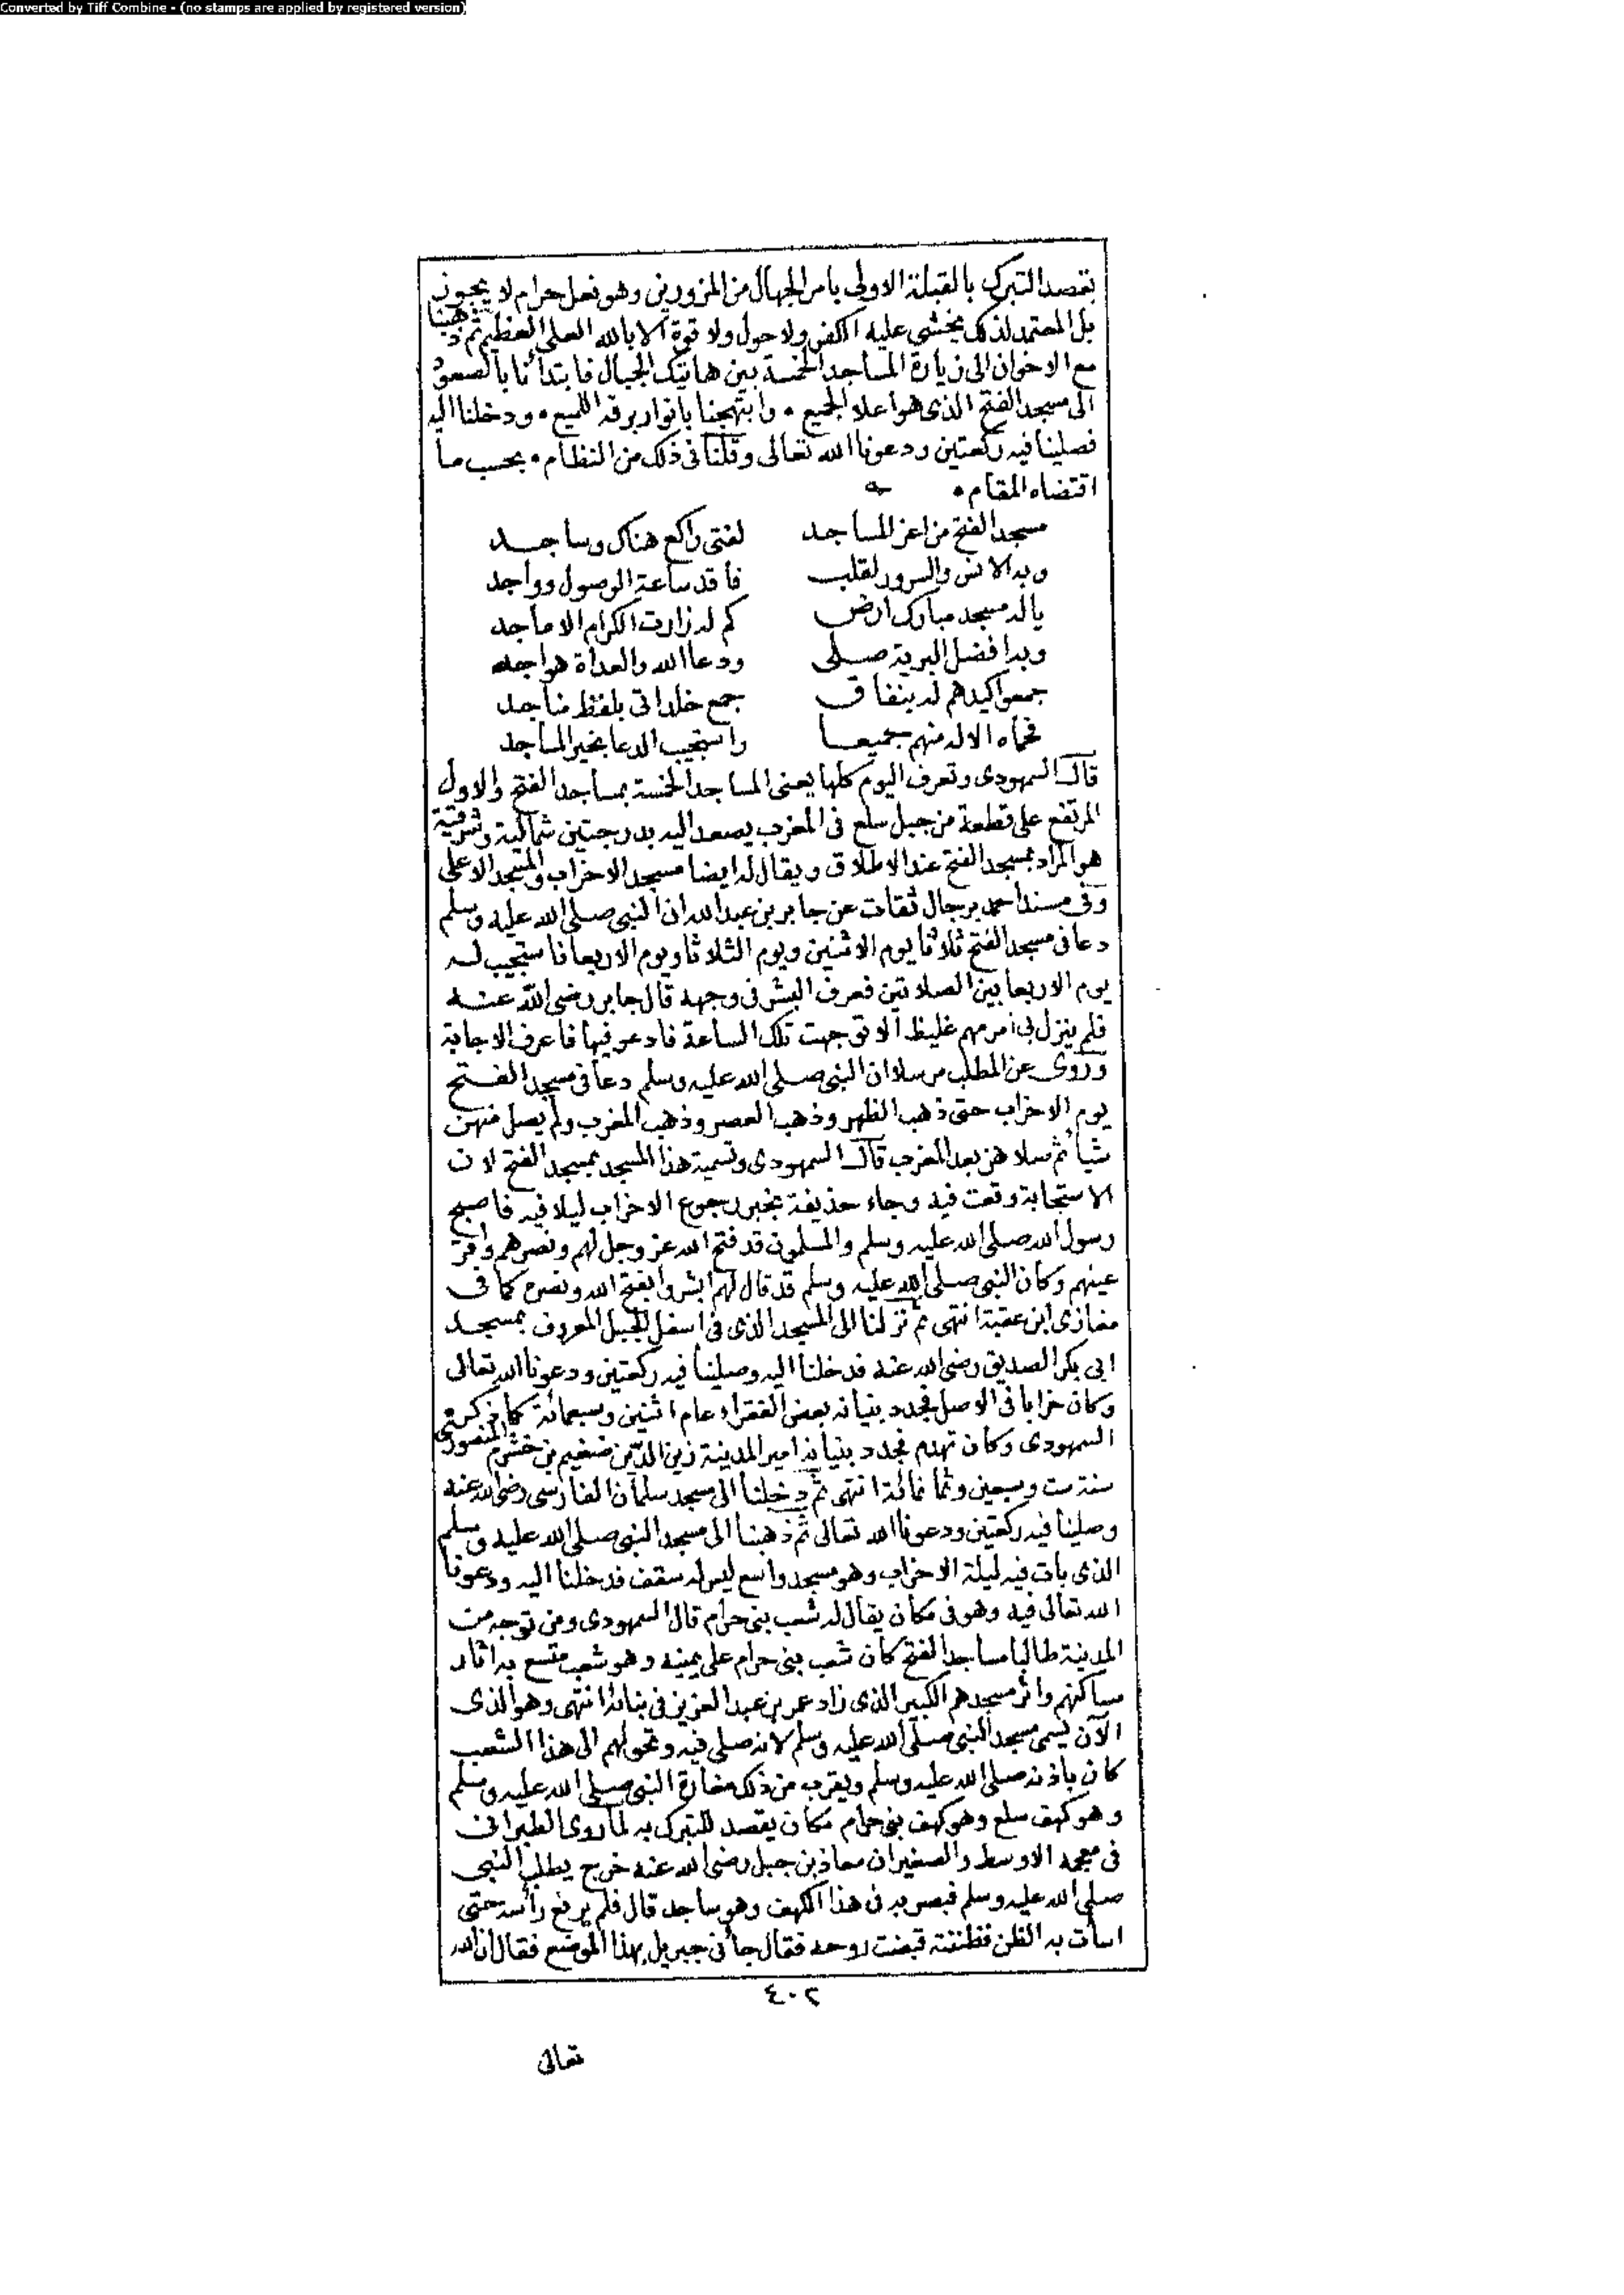 Converted by Tiff Combine - (no stamps are applied by registered version)
بقصد التبرك بالقبلة الاولى بامر الجهال من المزورين وهو فعل حرام لا يجوز
بل المعتمد لذلك يخشى عليه الكفر ولا حول ولا قوة الا بالله العلى العظيم ثم ذهبنا
مع الاخوان الى زيارة المساجد الخمسة بين هاتيك الجبال فابتدأنا بالصعود
الى مسجد الفتح الذى هو اعلا الجميع • وابتهجنا بانوار برقه اللميع • ودخلنا اليه
فصلينا فيه ركعتين ودعونا الله تعالى وقلنا فى ذلك من النظام • بحسب ما
اقتضاه المقام •
مسجد الفتح من اعز المساجد لفتى راكع هناك وساجد
وبه الانس والسرور لقلب فاقد ساعة الوصول وواجد
يا له مسجد مبارك ارض كم له زارت الكرام الاماجد
وبه افضل البرية صلى ودعا الله والعداة هواجد
جمعوا كيدهم له بنفاق جمع خلد اتى بلفظ مناجد
فحماه الاله منهم جميعا واستجيب الدعا بخير المساجد
قال السمهودى وتعرف اليوم كلها يعنى المساجد الخمسة بمساجد الفتح والاول
المرتفع على قطعة من جبل سلع فى المغرب يصعد اليه بدرجتين شمالية وشرقية
هو المراد بمسجد الفتح عند الاطلاق ويقال له ايضا مسجد الاحزاب والمسجد الاعلى
وفى مسند احمد برجال ثقات عن جابر بن عبد الله ان النبى صلى الله عليه وسلم
دعا فى مسجد الفتح ثلاثا يوم الاثنين ويوم الثلاثا ويوم الاربعا فاستجيب له
يوم الاربعا بين الصلاتين فعرف البشر فى وجهه قال جابر رضى الله عنه
فلم ينزل بى امر مهم غليظ الا توجهت تلك الساعة فادعو فيها فاعرف الاجابة
وروى عن المطلب مرسلا ان النبى صلى الله عليه وسلم دعا فى مسجد الفتح
يوم الاحزاب حتى ذهب الظهر وذهب العصر وذهب المغرب ولم يصل منهن
شيأ ثم صلاهن بعد المغرب قال السمهودى وتسمية هذا المسجد بمسجد الفتح لان
الاستجابة وقعت فيه وجاء حذيفة بخبر رجوع الاحزاب ليلا فيه فاصبح
رسول الله صلى الله عليه وسلم والمسلمون قد فتح الله عز وجل لهم ونصرهم واقر
عينهم وكان النبى صلى الله عليه وسلم قد قال لهم ابشروا بفتح الله ونصره كما فى
مغازى ابن عقبة انتهى ثم نزلنا الى المسجد الذى فى اسفل الجبل المعروف بمسجد
ابى بكر الصديق رضى الله عنه فدخلنا اليه وصلينا فيه ركعتين ودعونا الله تعالى
وكان خرابا فى الاصل فجدد بنيانه بعض الفقراء عام اثنين وتسعمائة كما ذكره
السمهودى وكان تهدم فجدد بنيانه امير المدينة زين الدين ضغيم بن خشرم المنصورى
سنة ست وسبعين وثمانمائة انتهى ثم دخلنا الى مسجد سلمان الفارسى رضى الله عنه
وصلينا فيه ركعتين ودعونا الله تعالى ثم ذهبنا الى مسجد النبى صلى الله عليه وسلم
الذى بات فيه ليلة الاحزاب وهو مسجد واسع ليس له سقف فدخلنا اليه ودعونا
الله تعالى فيه وهو فى مكان يقال له شعب بنى حرام قال السمهودى ومن توجه من
المدينة طالبا مساجد الفتح كان شعب بنى حرام على يمينه وهو شعب متسع به اثار
مساكنهم واثر مسجدهم الكبير الذى زاد عمر بن عبد العزيز فى بنائه انتهى وهو الذى
الآن يسمى مسجد النبى صلى الله عليه وسلم لانه صلى فيه وتحولهم الى هذا الشعب
كان باذنه صلى الله عليه وسلم وبقرب من ذلك مغارة النبى صلى الله عليه وسلم
وهو كهف سلع وهو كهف بنى حرام مكان يقصد للتبرك به لما روى الطبرانى
فى معجمه الاوسط والصغير ان معاذ بن جبل رضى الله عنه خرج يطلب النبى
صلى الله عليه وسلم فبصر به فى هذا الكهف وهو ساجد قال فلم يرفع رأسه حتى
اسأت به الظن فظننته قبضت روحه فقال جأنى جبريل بهذا الموضع فقال ان الله
٤٠٢
تعالى